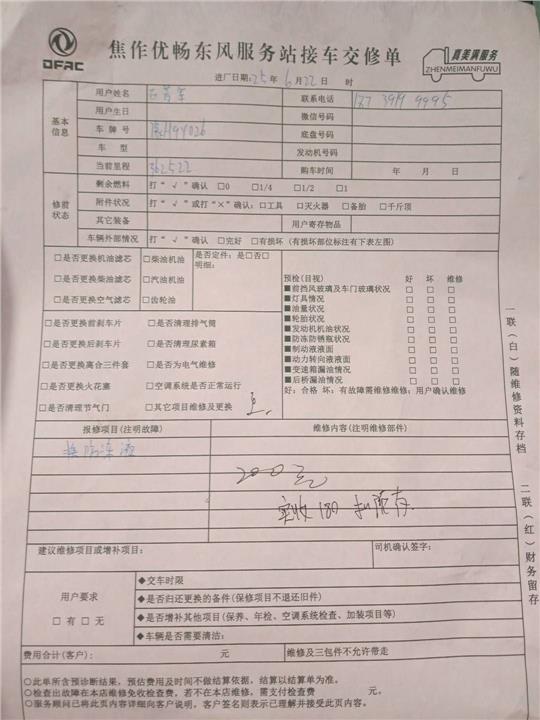 DFAC
焦作优畅东风服务站接车交修单
真美满服务
ZHENMEIMANFUWU
进厂日期:25年 6月22日 时
基本信息
用户姓名
联系电话
用户生日
微信号码
车牌号
底盘号码
车 型
发动机号码
当前里程 362522
购车时间 年 月 日
修前状态
剩余燃料 打“√”确认 □0 □1/4 □1/2 □1
附件状况 打“√”或打“×”确认:□工具 □灭火器 □备胎 □千斤顶
其它装备
用户寄存物品
车辆外部情况 打“√”确认 □完好 □有损坏(有损坏部位标注有下表左图)
□是否更换机油滤芯 □柴油机油
□是否更换柴油滤芯 □汽油机油
□是否更换空气滤芯 □齿轮油
是否定件:是□否□
明细:
□是否更换前刹车片 □是否清理排气筒
□是否更换后刹车片 □是否清理尿素箱
□是否更换离合三件套 □是否为电气维修
□是否更换火花塞 □空调系统是否正常运行
□是否清理节气门 □其它项目维修及更换
预检(目视) 好 坏 维修
■前挡风玻璃及车门玻璃状况 □ □ □
■灯具情况 □ □ □
■油量状况 □ □ □
■轮胎状况 □ □ □
■发动机机油状况 □ □ □
■防冻防锈瓶状况 □ □ □
■制动液液面 □ □ □
■动力转向液液面 □ □ □
■变速箱漏油情况 □ □ □
■后桥漏油情况 □ □ □
好:合格 坏:有故障需维修维修:用户确认维修
报修项目(注明故障)
维修内容(注明维修部件)
换防冻液
200元
实收180
建议维修项目或增补项目:
司机确认签字:
用户要求
□有 □无
◆交车时限
◆是否归还更换的备件(保修项目不退还旧件)
◆是否增补其他项目(保养、年检、空调系统检查、加装项目等)
◆车辆是否需要清洁:
费用合计(客户): 元
维修及三包件不允许带走
○此单所含预诊断结果,预估费用及时间不做结算依据,结算以结算单为准。
○检查出故障在本店维修免收检查费,若不在本店维修,需支付检查费 元。
○服务顾问已将此页内容详细向客户说明,客户签名则表示已理解并接受此页内容。
一联(白)随维修资料存档
二联(红)财务留存